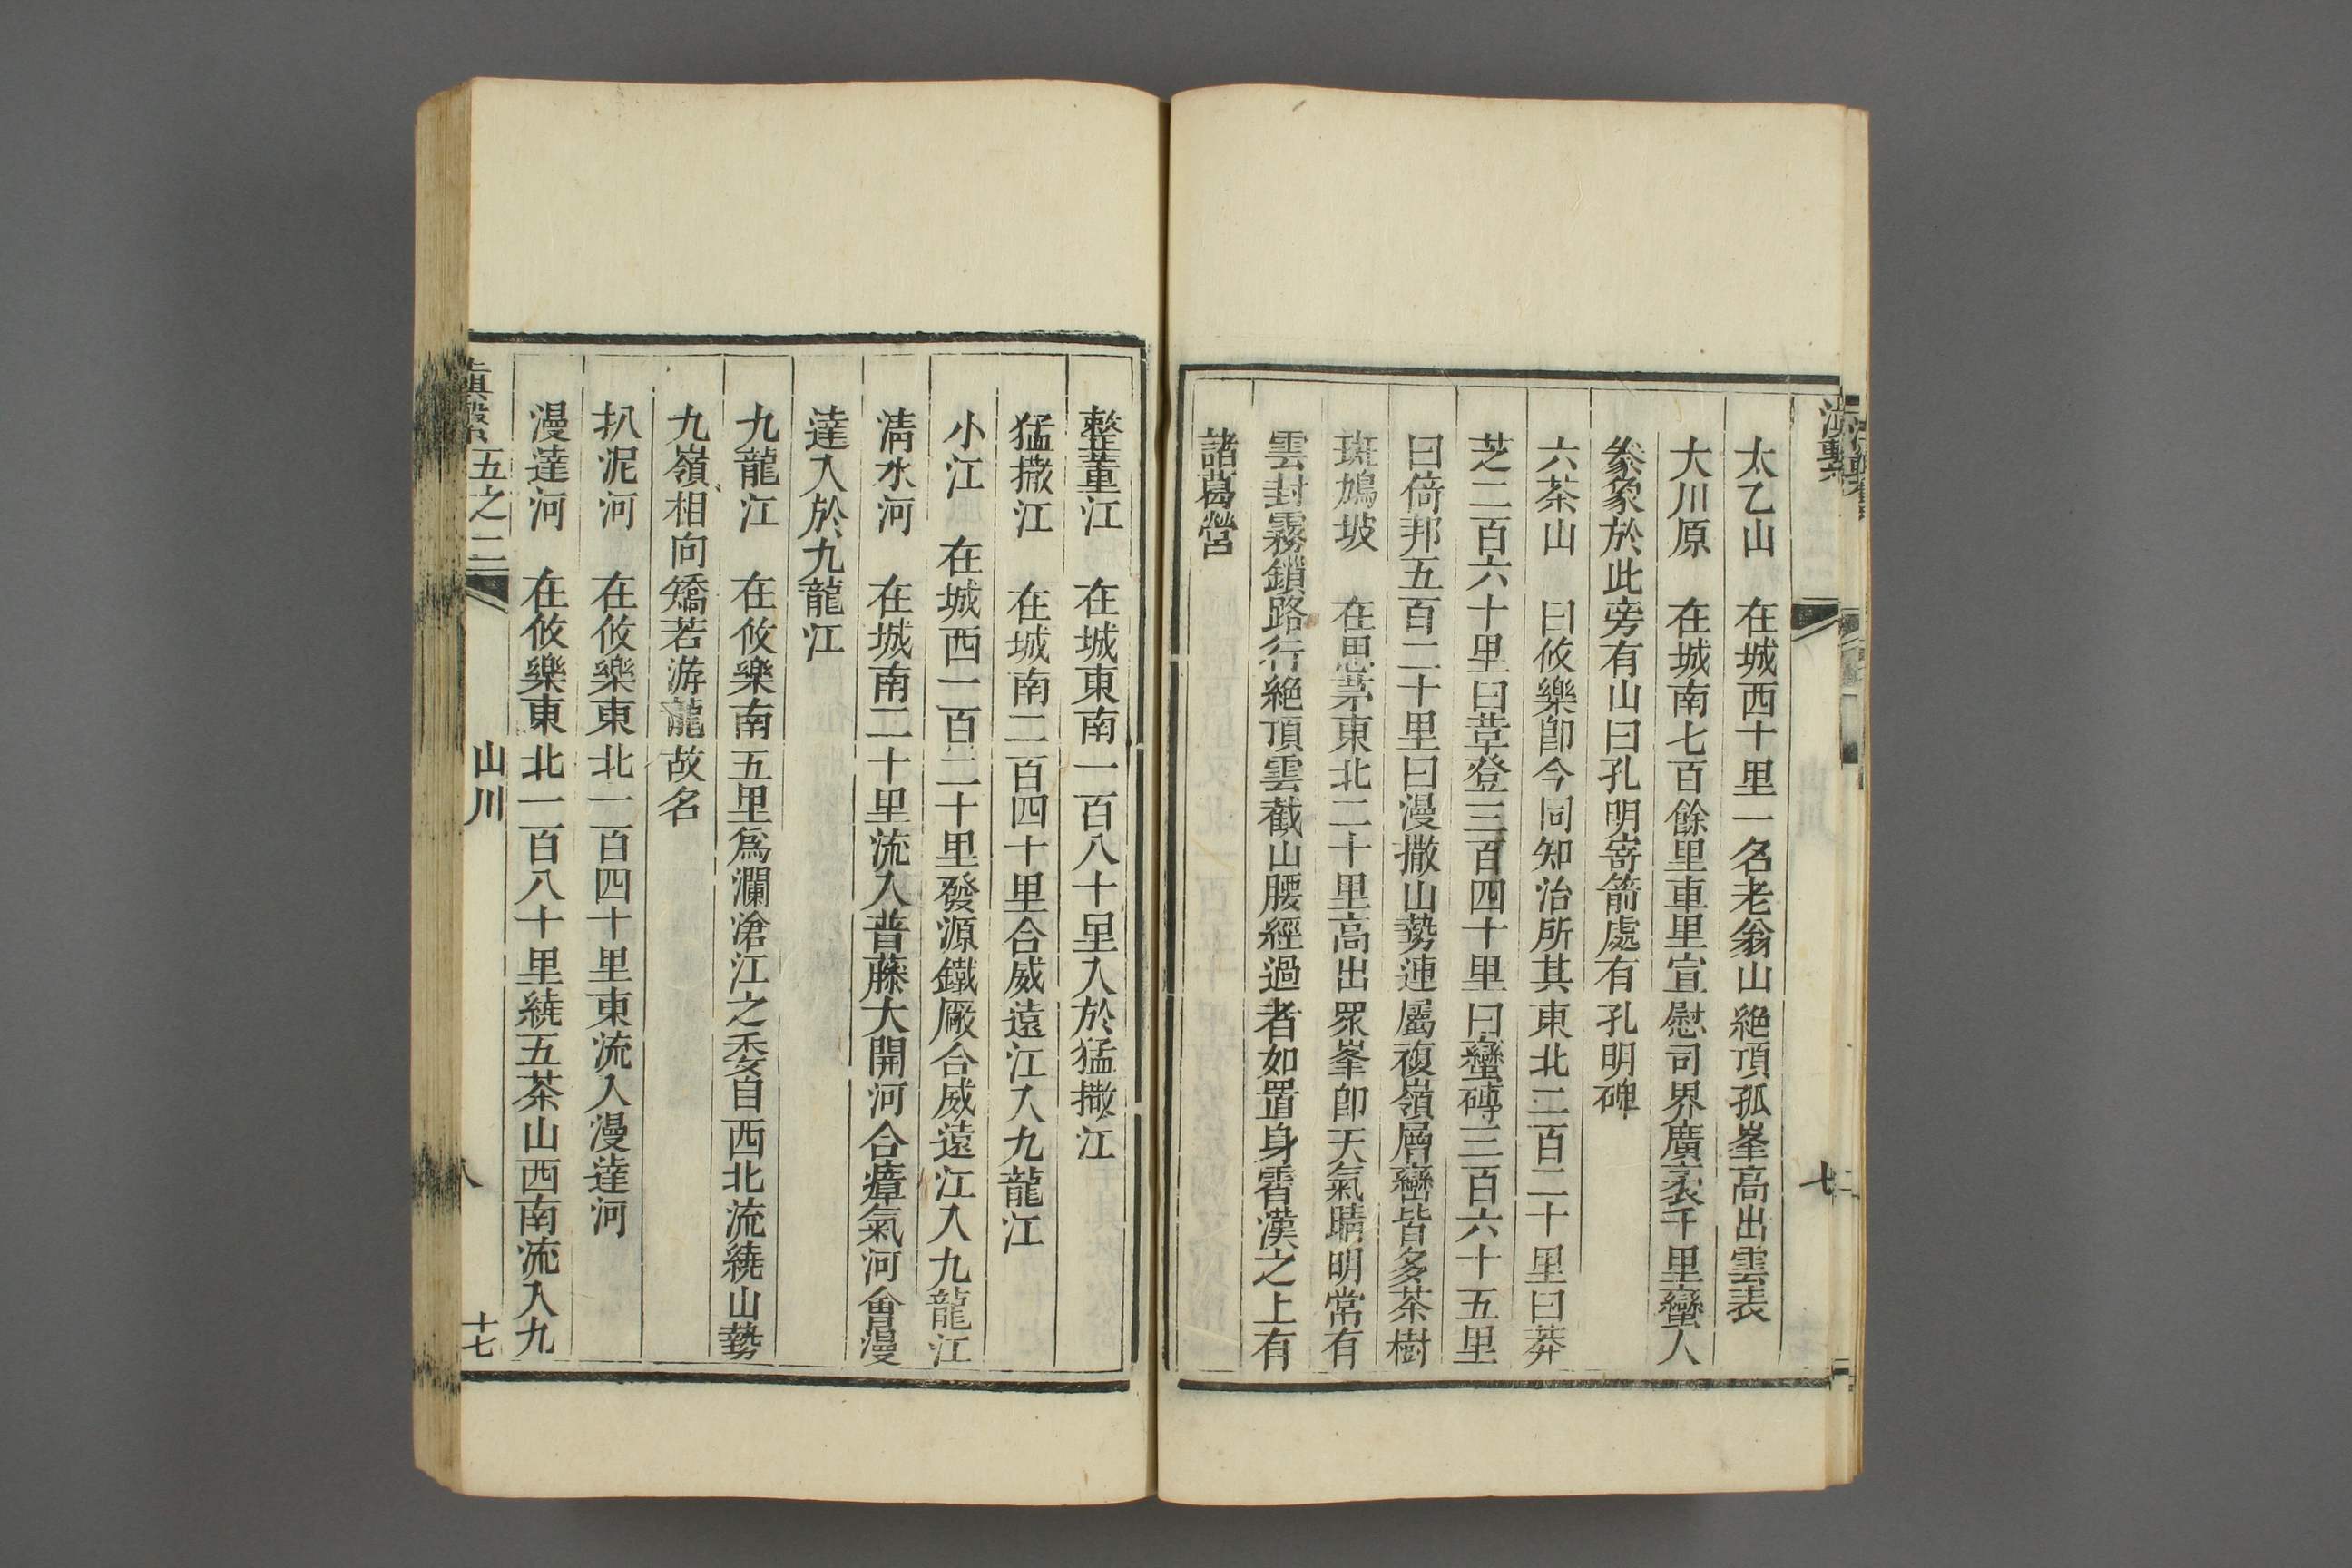 太乙山　在城西十里一名老翁山絶頂孤峯高出雲表
大川原　在城南七百餘里車里宣慰司界廣袤千里蠻人
豢象於此旁有山曰孔明寄箭處有孔明碑
六茶山　曰攸樂卽今同知治所其東北二百二十里曰莽
芝二百六十里曰革登三百四十里曰蠻磚三百六十五里
曰倚邦五百二十里曰漫撒山勢連屬複嶺層巒皆多茶樹
斑鳩坡　在思茅東北二十里高出眾峯卽天氣晴明常有
雲封霧鎖路行絶頂雲截山腰經過者如置身霄漢之上有
諸葛營
整董江　在城東南一百八十里入於猛撒江
猛撒江　在城南二百四十里合威遠江入九龍江
小江　在城西一百二十里發源鐵廠合威遠江入九龍江
清水河　在城南二十里流入普藤大開河合瘴氣河會漫
達入於九龍江
九龍江　在攸樂南五里爲瀾滄江之委自西北流繞山勢
九嶺相向矯若游龍故名
扒泥河　在攸樂東北一百四十里東流入漫達河
漫達河　在攸樂東北一百八十里繞五茶山西南流入九
五之二　山川　八　十七